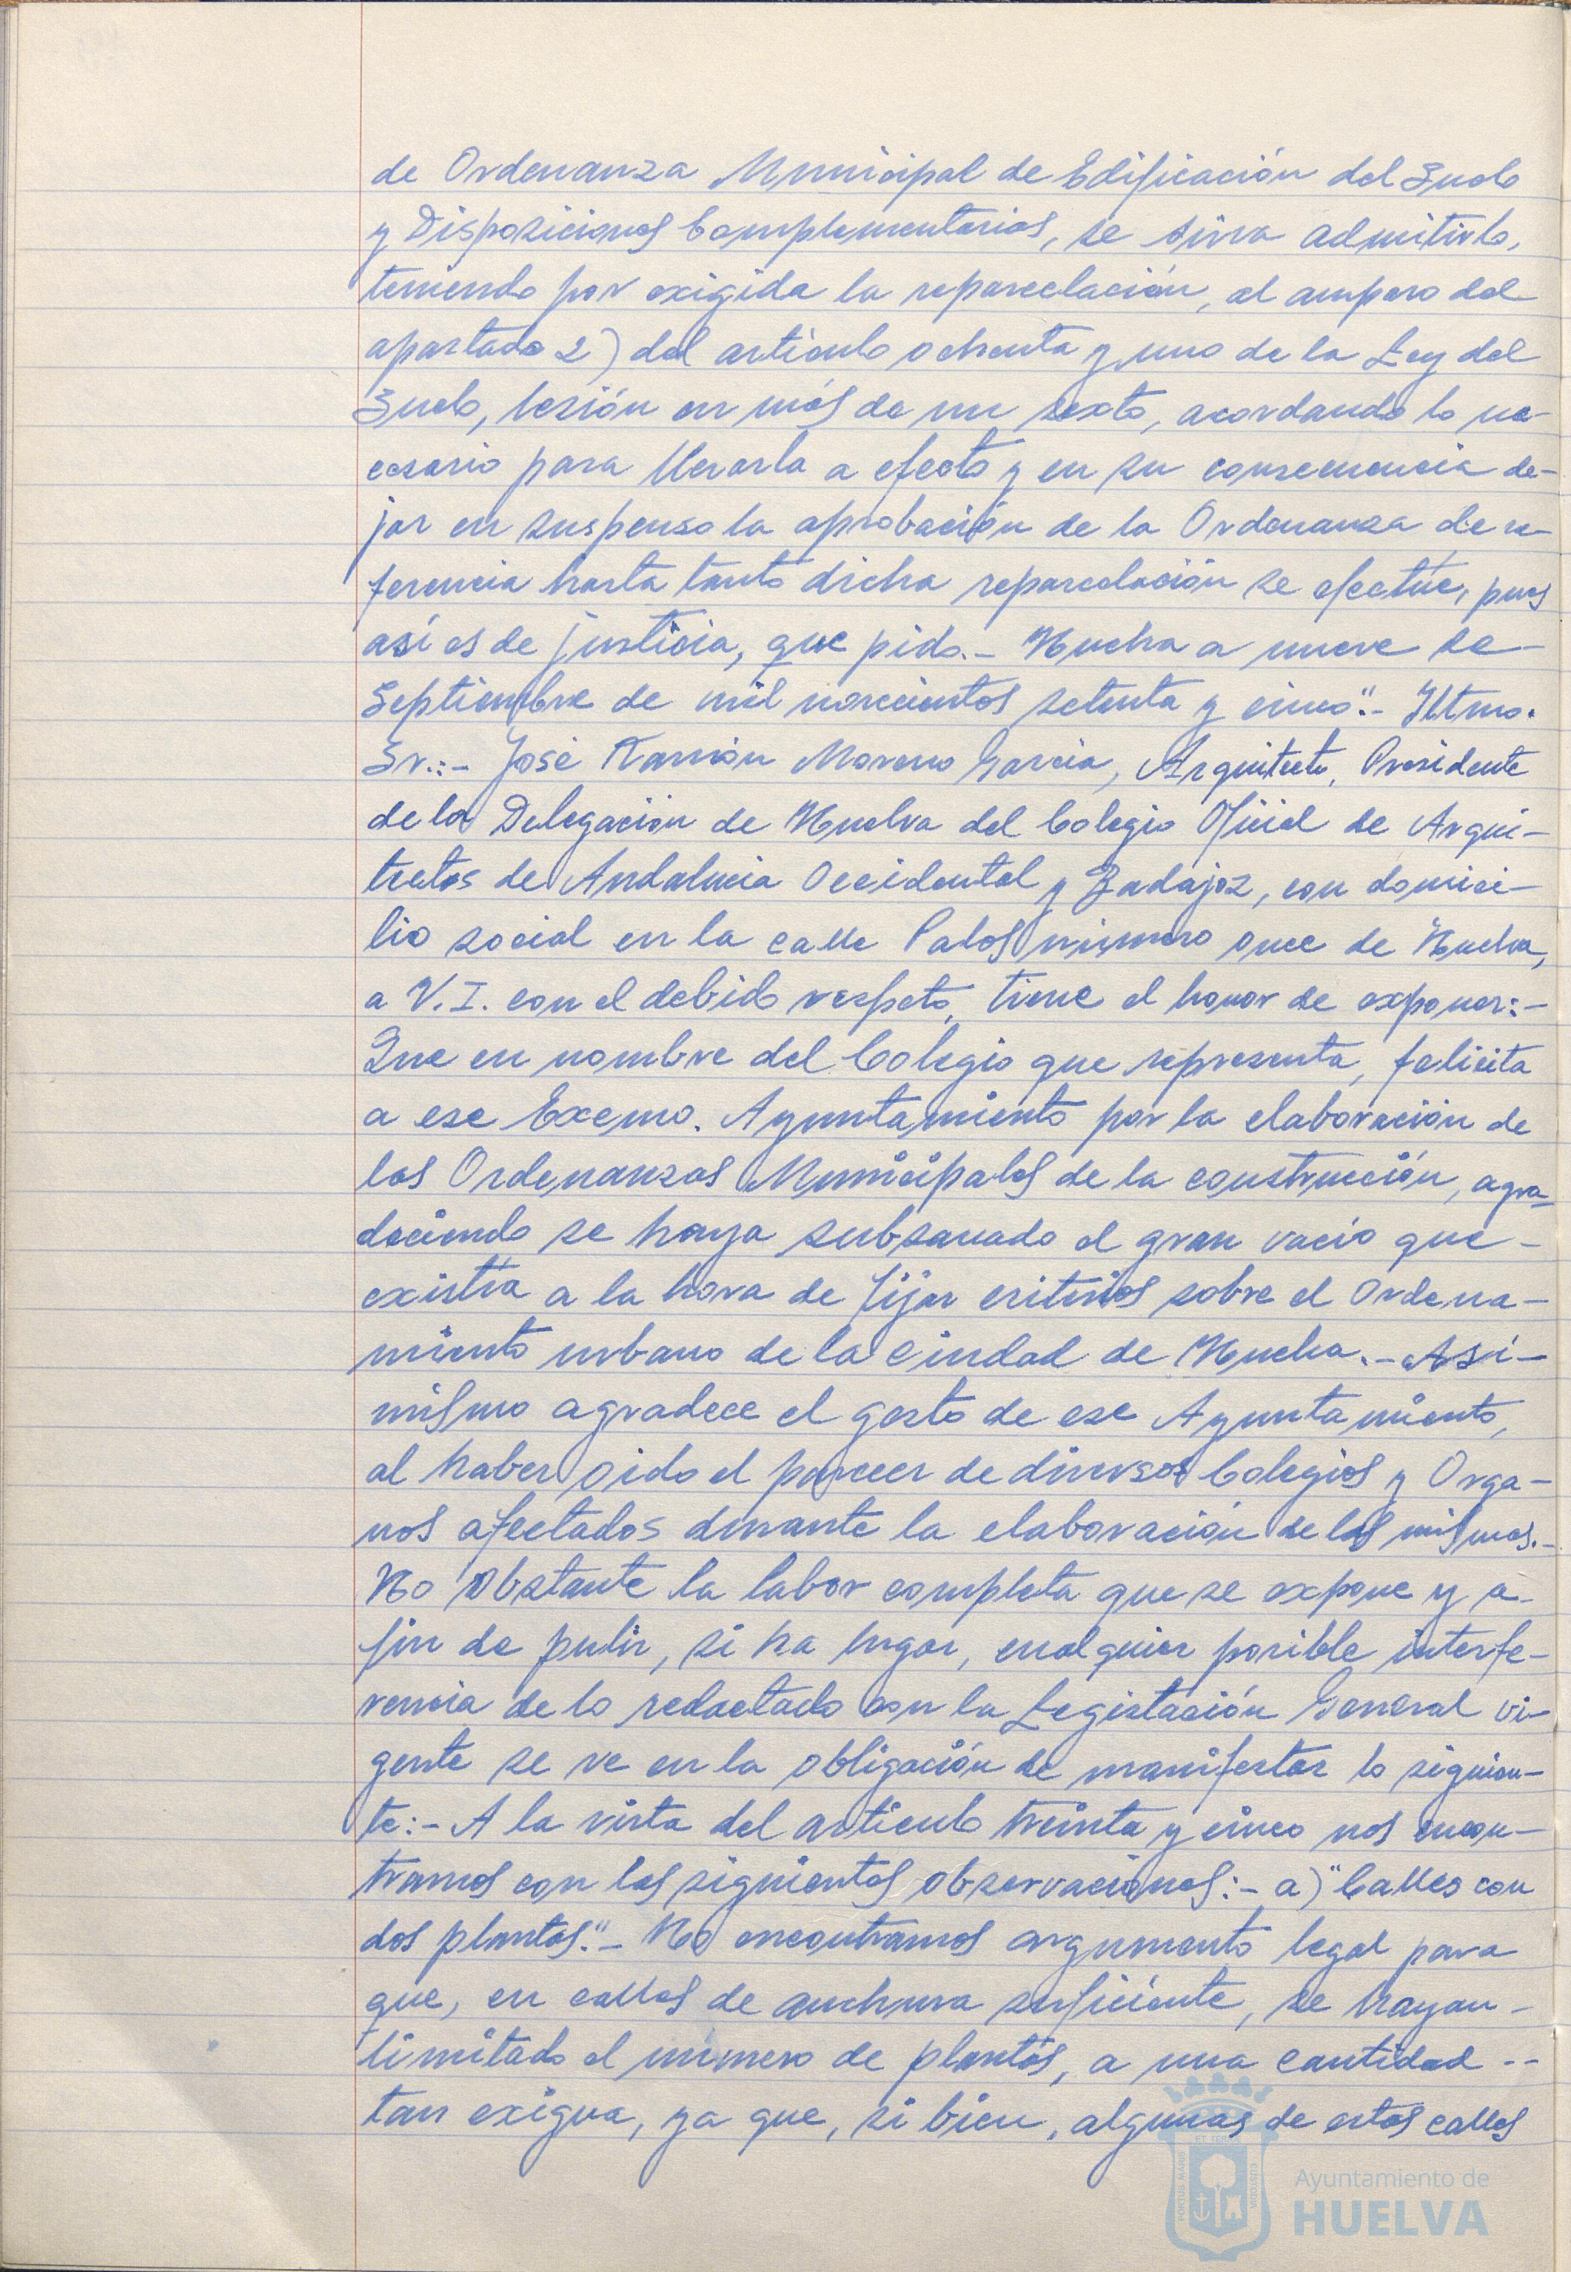 de Ordenanza Municipal de Edificación del Suelo
y Disposiciones Complementarias, se sirva admitirlo,
teniendo por exigida la reparcelación, al amparo del
apartado 2) del artículo ochenta y uno de la Ley del
Suelo, lesión en más de un sexto, acordando lo ne-
cesario para llevarla a efecto y en su consecuencia de-
jar en suspenso la aprobación de la Ordenanza de re-
ferencia hasta tanto dicha reparcelación se efectúe, pues
así es de justicia, que pido.- Huelva a nueve de
Septiembre de mil novecientos setenta y cinco".- Iltmo.
Sr.:- José Ramón Moreno García, Arquitecto, Presidente
de la Delegación de Huelva del Colegio Oficial de Arqui-
tectos de Andalucia Occidental y Badajoz, con domici-
lio social en la calle Palos número once de Huelva,
a V.I. con el debido respeto, tiene el honor de exponer:-
Que en nombre del Colegio que representa, felicita
a ese Excmo. Ayuntamiento por la elaboración de
las Ordenanzas Municipales de la construcción, agra-
deciendo se haya subsanado el gran vacío que -
existía a la hora de fijar criterios sobre el Ordena-
miento urbano de la Ciudad de Huelva.- Asi-
mismo agradece el gesto de ese Ayuntamiento,
al haber oido el parecer de diversos Colegios y Orga-
nos afectados durante la elaboración de las mismas.-
No obstante la labor completa que se expone y a
fin de pulir, si ha lugar, cualquier posible interfe-
rencia de lo redactado con la Legislación General vi-
gente se ve en la obligación de manifestar lo siguien-
te:- A la vista del artículo treinta y cinco nos encon-
tramos con las siguientes observaciones:- a) "Calles con
dos plantas".- No encontramos argumento legal para
que, en calles de anchura suficiente, se hayan -
limitado el número de plantas, a una cantidad --
tan exigua, ya que, si bien, algunas de estas calles
Ayuntamiento de
HUELVA